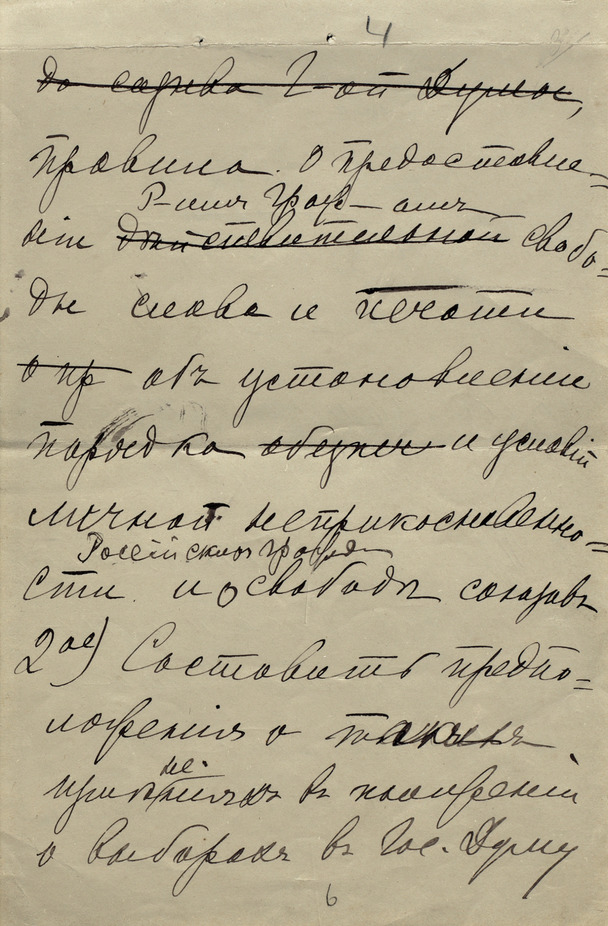 4
до созыва I-ой Думы,
правила о предоставле=
Р-имъ граж-амъ
нiи дѣйствительной свобо=
ды слова и печати
о пр объ установленiи
порядка и условiй
личной неприкосновенно=
Россiйскихъ гражд
сти и о свободѣ союзовъ
2ое) Составить предпо=
ложенiя о такихъ
не.
въ положенiи
о выборахъ въ Гос. Думу
6